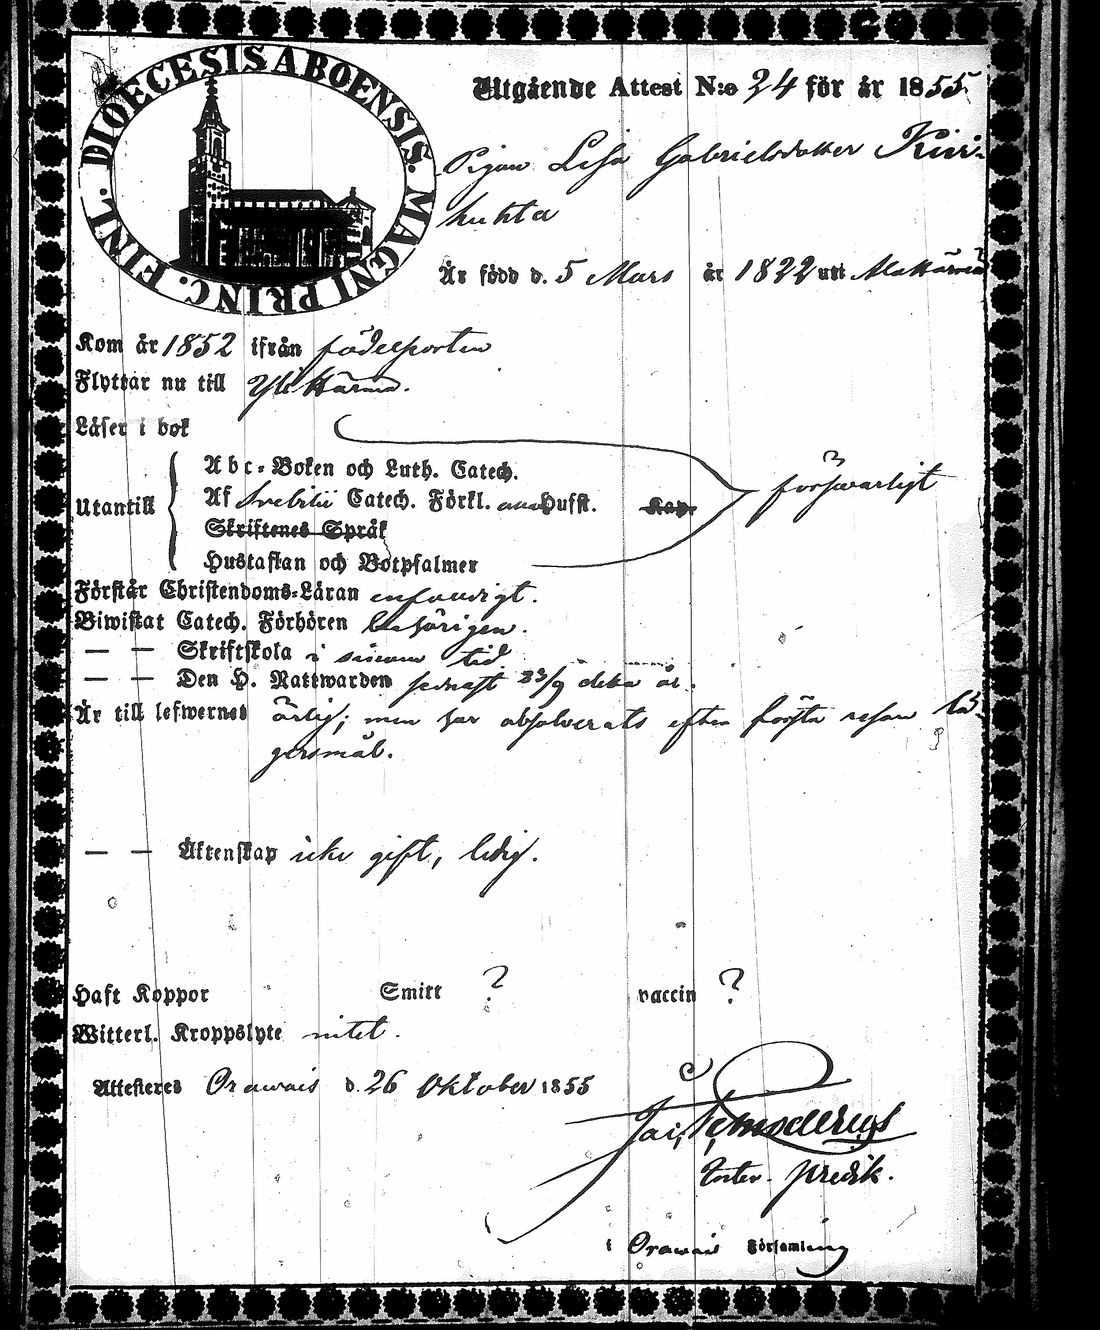 DIOECESIS ABOENSIS. MAGNI PRINC. FINL.
Utgående Attest N:o 24 för år 1855
Pigan Lisa Gabrielsdotter Kivi-
huhta
Är född d. 5 Mars år 1822 uti Alahärmä
Kom år 1852 ifrån födelseorten
Flyttar nu till Ylihärmä.
Läser i bok
Abc-Boken och Luth. Catech.
Utantill Af Svebilii Catech. Förkl. Hufst. Kap. försvarligt
Skriftenes Språk
Hustaflan och Botpsalmer
Förstår Christendoms-Läran enfaldigt.
Biwistat Catech. Förhören behörigen.
— — Skriftskola i sinom tid
— — Den H. Nattwarden senast 23/9 detta år.
Är till lefwernet ärlig; men har absolverats efter första resan lä-
gersmål.
— — Äktenskap icke gift, ledig.
Haft Koppor Smitt ? vaccin ?
Witterl. Kroppslyte intet.
Attesteras Orawais d. 26 Oktober 1855
predik.
i Orawais Församling